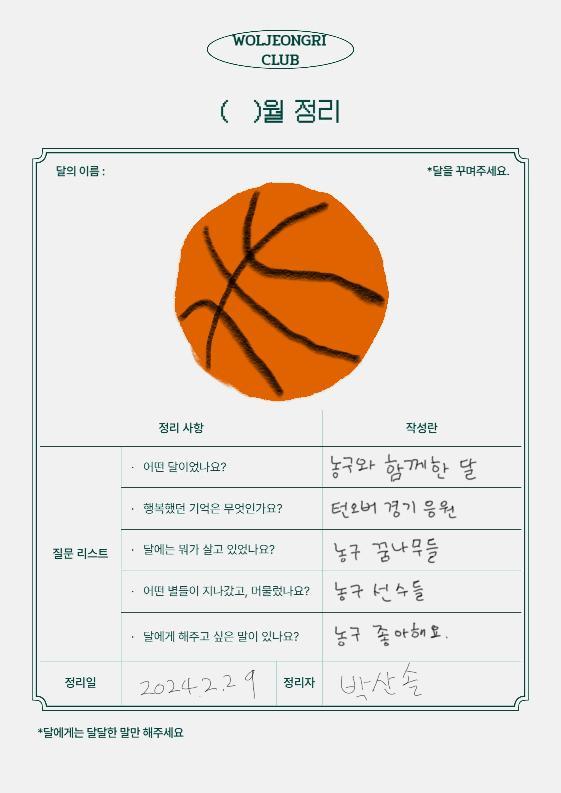 WOLJEONGRI
CLUB
( )월 정리
달의 이름 :
*달을 꾸며주세요.
정리 사항
작성란
질문 리스트
· 어떤 달이었나요?
농구와 함께한 달
· 행복했던 기억은 무엇인가요?
턴오버 경기 응원
· 달에는 뭐가 살고 있었나요?
농구 꿈나무들
· 어떤 별들이 지나갔고, 머물렀나요?
농구 선수들
· 달에게 해주고 싶은 말이 있나요?
농구 좋아해요.
정리일
2024.2.29
정리자
박산솔
*달에게는 달달한 말만 해주세요